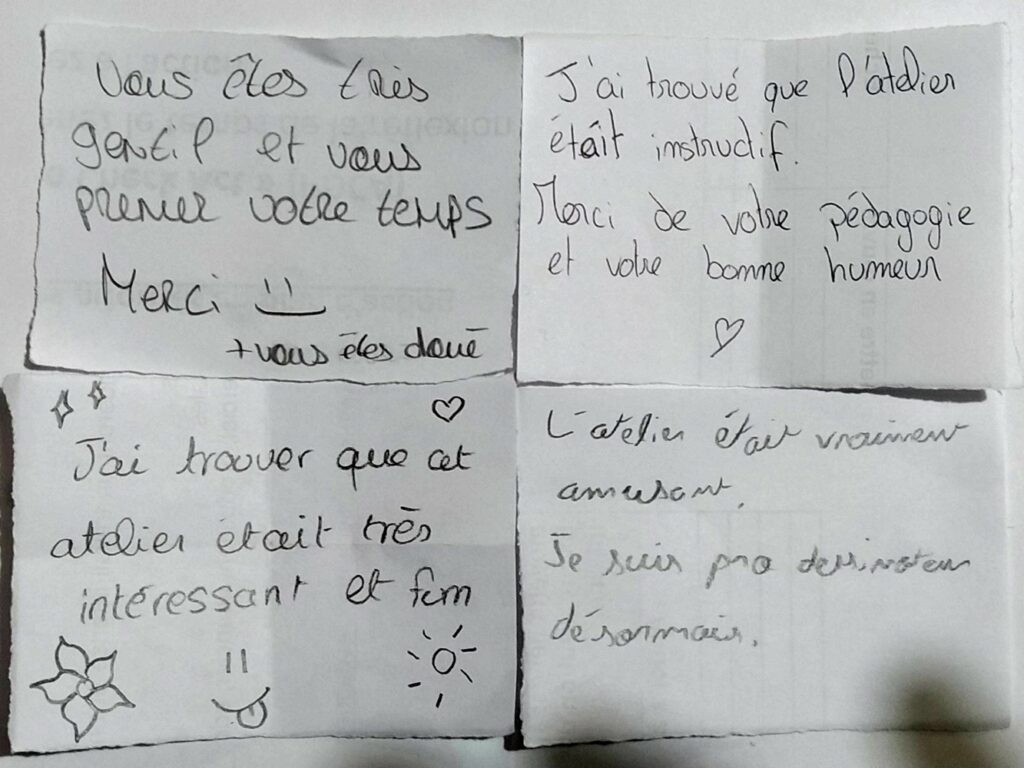 Vous êtes très
gentil et vous
prener votre temps
Merci
+vous êtes doué
J'ai trouvé que l'atelier
étâit instructif.
Merci de votre pédagogie
et votre bonne humeur
J'ai trouver que cet
atelier était très
intéressant et fun
L'atelier était vraiment
amusant.
Je suis pro dessinateur
désormais.